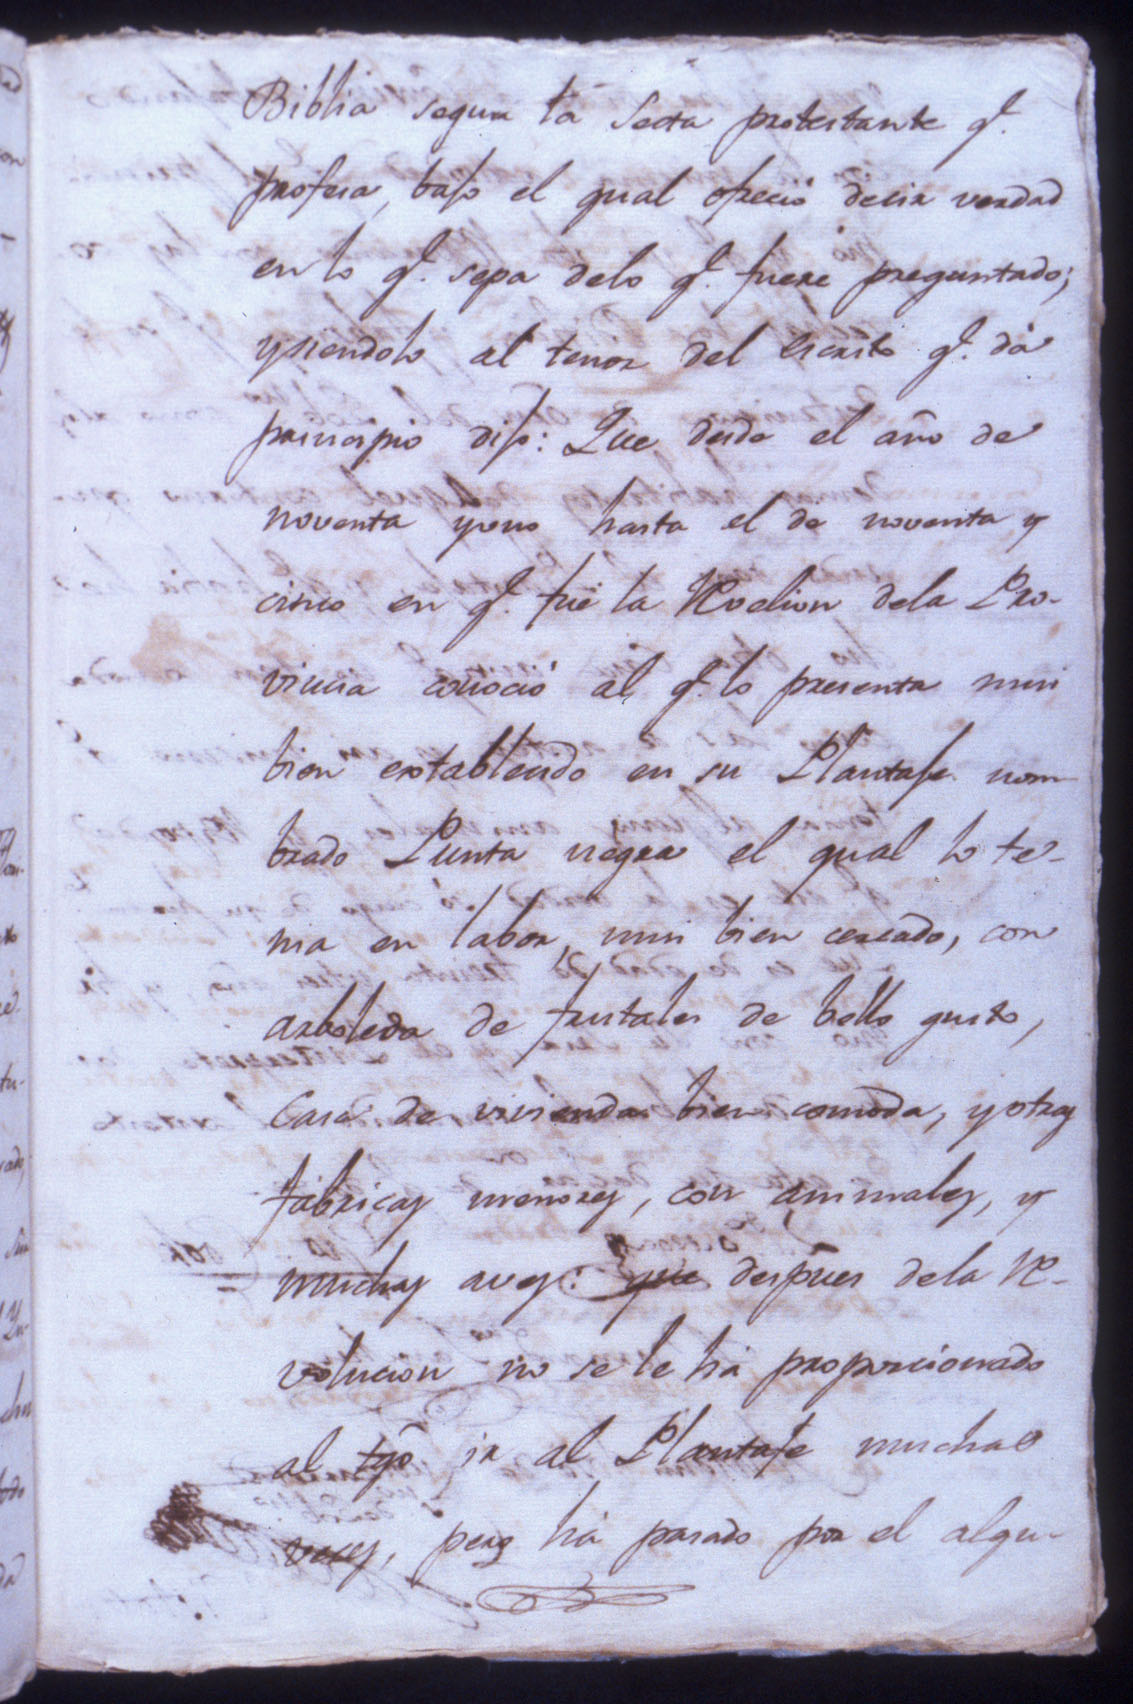 Biblia segun la Secta protestante q.ᵉ
profesa, bajo el qual ofreció decir verdad
en lo q.ᵉ sepa delo q.ᵉ fuere preguntado;
ysiendolo al tenor del escrito q.ᵉ dá
principio dijo: Que desde el año de
noventa yuno hasta el de noventa y
cinco en q.ᵉ fué la Rvelion dela Pro-
vincia conoció al q.ᵉ lo presenta mui
bien establecido en su Plantaje nom
brado Punta negra el qual lo te-
nia en labor, mui bien cercado, con
arboleda de frutales de bello gusto,
Casa de vivienda bien comoda, yotras
fabricas menores, con animales, y
muchas aves: que despues dela Re-
volucion no se le há proporcionado
al tgõ ir al Plantaje muchas
veces, pero há pasado por el algu-